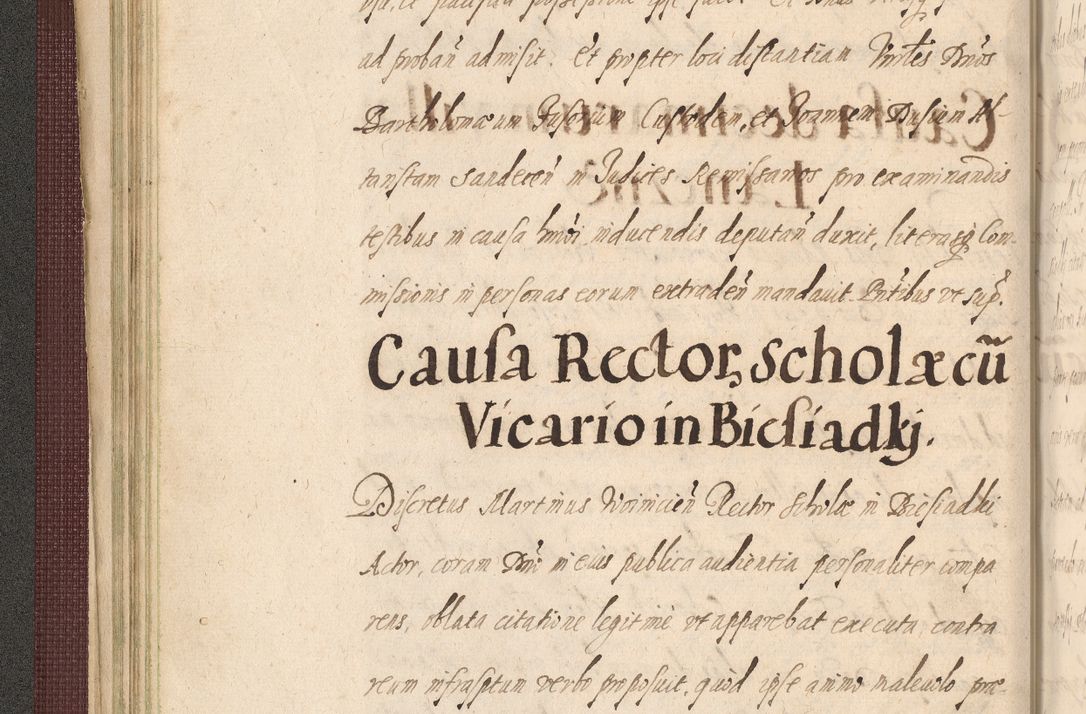 ad proban̄ admisit. Et propter loci distantiam Vnrles Dn̄os
Bartholomæum Fusorium Custodem, et Joannem Dusium Al-
taristam Sandecen̄ in Judices Remissarios pro examinandis
testibus in causa hm̄oi inducendis deputan̄ duxit, literasq̃ Com-
missionis in personas eorum extraden̄ mandauit. Pn̄tibus vt sup̄.
Causa Rector, Scholæ cū
Vicario in Biesiadkj.
Discretus Martinus Woinicien̄ Rector Scholæ in Biesiadki
Actor, coram Dn̄o in eius publica audientia personaliter compa
rens, oblata citatione legitime vt apparebat executa, contra
reum infrasptum verbo proposuit, quòd ipse animo maleuolo præ-